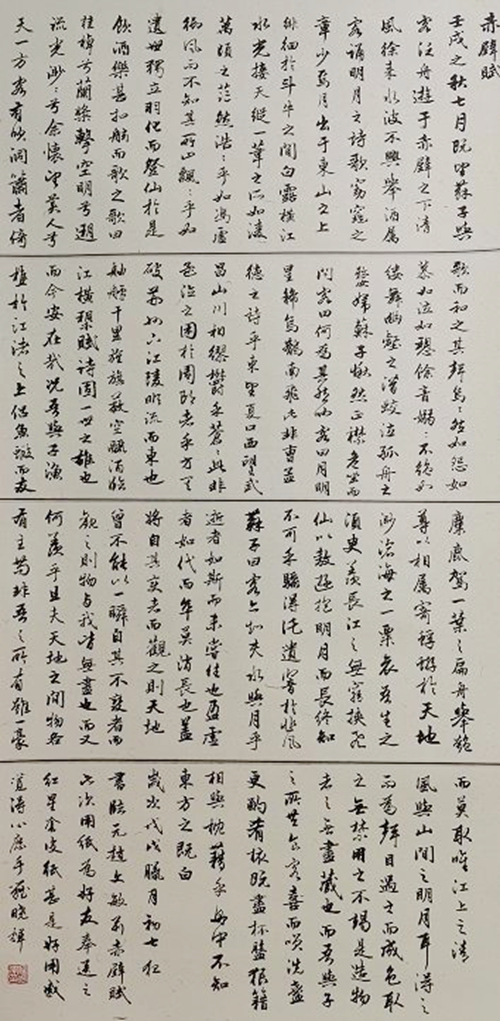 赤壁賦
壬戌之秋七月既望蘇子與
客泛舟遊于赤壁之下清
風徐來水波不興舉酒屬
客誦明月之詩歌窈窕之
章少焉月出于東山之上
徘徊於斗牛之間白露橫江
水光接天縱一葦之所如凌
萬頃之茫然浩〻乎如馮虛
御風而不知其所止飄〻乎如
遺世獨立羽化而登仙於是
飲酒樂甚扣舷而歌之歌曰
桂棹兮蘭槳擊空明兮遡
流光渺〻兮余懷望美人兮
天一方客有吹洞簫者倚
歌而和之其聲嗚〻然如怨如
慕如泣如愬餘音嫋〻不絕如
縷舞幽壑之潛蛟泣孤舟之
嫠婦蘇子愀然正襟危坐而
問客曰何為其然也客曰月明
星稀烏鵲南飛此非曹孟
德之詩乎東望夏口西望武
昌山川相繆鬱乎蒼〻此非
孟德之困於周郎者乎方其
破荊州下江陵順流而東也
舳艫千里旌旗蔽空釃酒臨
江橫槊賦詩固一世之雄也
而今安在哉況吾與子漁
樵於江渚之上侶魚蝦而友
麋鹿駕一葉之扁舟舉匏
尊以相屬寄蜉蝣於天地
渺滄海之一粟哀吾生之
須臾羨長江之無窮挾飛
仙以遨遊抱明月而長終知
不可乎驟得託遺響於悲風
蘇子曰客亦知夫水與月乎
逝者如斯而未嘗往也盈虛
者如代而卒莫消長也蓋
將自其變者而觀之則天地
曾不能以一瞬自其不變者而
觀之則物與我皆無盡也而又
何羨乎且夫天地之間物各
有主苟非吾之所有雖一毫
而莫取唯江上之清
風與山間之明月耳得之
而為聲目遇之而成色取
之無禁用之不竭是造物
者之無盡藏也而吾與子
之所共食客喜而笑洗盞
更酌肴核既盡杯盤狼籍
相與枕藉乎舟中不知
東方之既白
歲次戊戌臘月初七
書臨元趙文敏公赤壁賦
此次用紙為好友奉送之
紅星金皮紙甚是好用感
覺得心應手